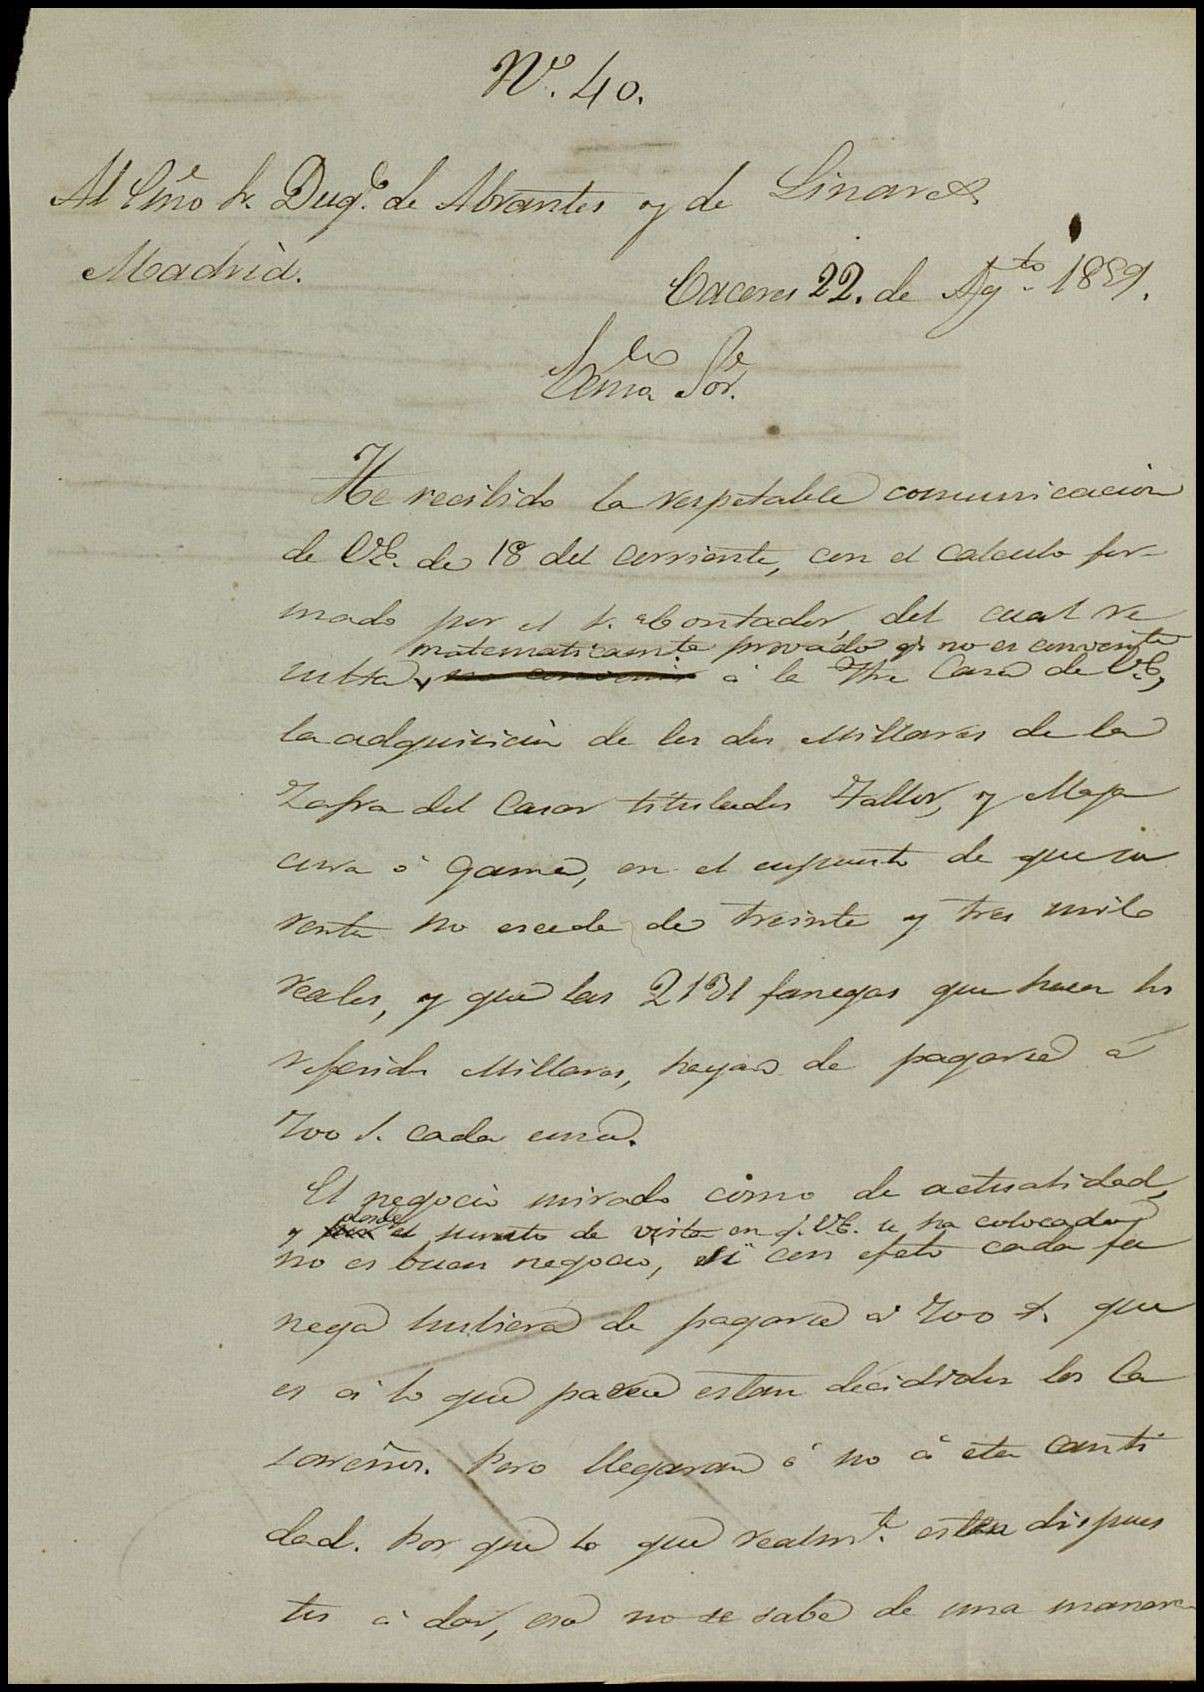 Nº. 40.
Al Emo Sr. Duqe. de Abrantes y de Linares
Madrid.
Caceres 22. de Agto. 1859.
Sor.
He recibido la respetable comunicacion
de V.E. de 18 del corriente, con el calculo for-
mado por el S. Contador, del cual re
matematicamte. provado q. no es convente
sulta, no convenir á la Casa de V.E,
la adquisicion de los dos Millares de la
Zafra del Casar titulados y Maja
curra ó Gama, en el supuesto de que su
renta no escede de treinta y tres mil
reales, y que las 2131 fanegas que hacen los
referidos Millares, hayan de pagarse á
700 r. cada una.
El negocio mirado como de actualidad,
y desde el punto de vista en q. V.E. se ha colocado,
no es buen negocio, si con efeto cada fa
nega hubiera de pagarse á 700 r. que
es á lo que parece estan decididos los Ca
sareños. Pero llegaran ó no á esta canti
dad. Por que lo que realmte. estan dispues
tos á dar, eso no se sabe de una manera